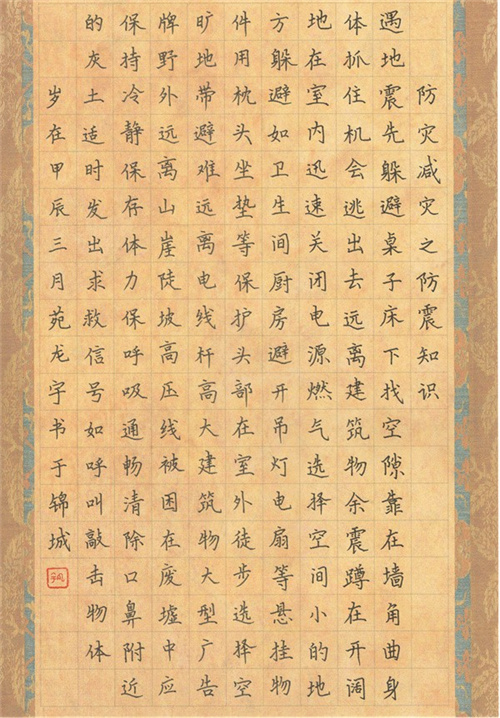 防灾减灾之防震知识
遇地震先躲避桌子床下找空隙靠在墙角曲身
体抓住机会逃出去远离建筑物余震蹲在开阔
地在室内迅速关闭电源燃气选择空间小的地
方躲避如卫生间厨房避开吊灯电扇等悬挂物
件用枕头坐垫等保护头部在室外徒步选择空
旷地带避难远离电线杆高大建筑物大型广告
牌野外远离山崖陡坡高压线被困在废墟中应
保持冷静保存体力保呼吸通畅清除口鼻附近
的灰土适时发出求救信号如呼叫敲击物体
岁在甲辰三月苑龙宇书于锦城